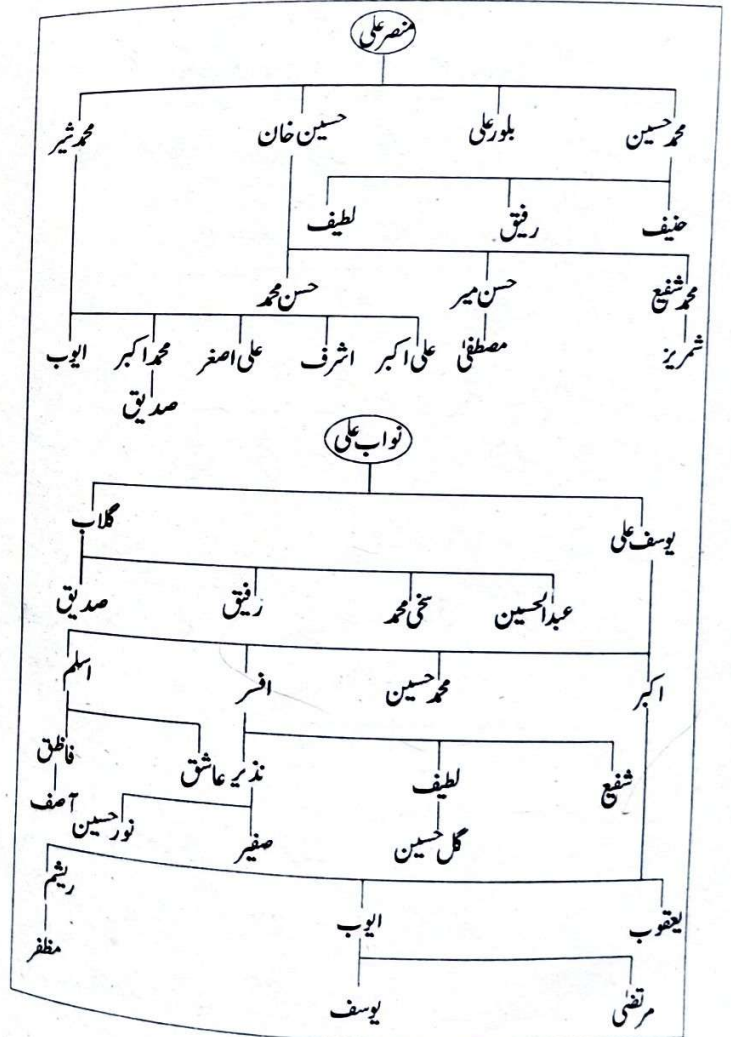 منصر علی
محمد حسین بلور علی حسین خان محمد شیر
حنیف رفیق لطیف
محمد شفیع حسن میر حسن محمد
شمریز مصطفیٰ علی اکبر اشرف علی اصغر محمد اکبر ایوب
صدیق
نواب علی
یوسف علی گلاب
عبدالحسین سخی محمد رفیق صدیق
اکبر محمد حسین افسر اسلم
شفیع لطیف نذیر عاشق فاظق
گل حسین صفیر نور حسین آصف
یعقوب ایوب ریشم
مظفر
مرتضیٰ یوسف